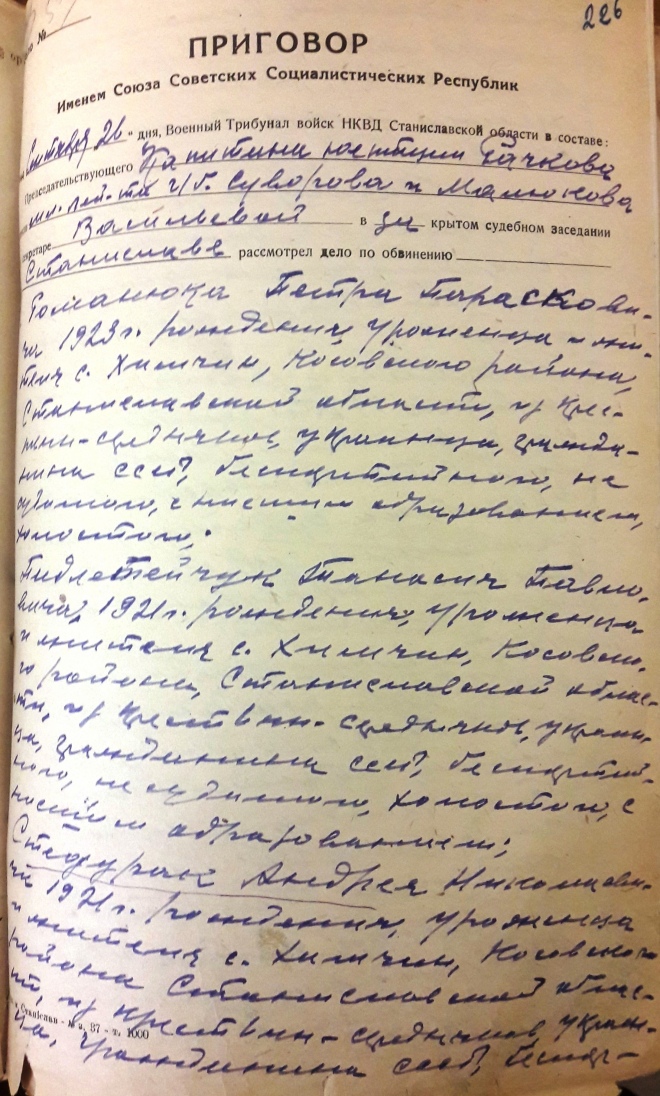 226
ПРИГОВОР
Именем Союза Советских Социалистических Республик
Сентября 26 " дня, Военный Трибунал войск НКВД Станиславской области в составе:
Председательствующего Капитана юстиции Гачкова
мл. лей-та г/б. Суворова и Малюкова
секретаре Васильевой в за крытом судебном заседании
Станиславе рассмотрел дело по обвинению
Романюка Петра Параскови-
ча 1923 г. рождения, уроженца и жи-
теля с. Химчин, Косовского района,
Станиславской области, из крес-
тьян-средняков, украинца, гражда-
нина СССР, беспартийного, не
судимого, с низшим образованием,
холостого;
Пидлетейчук Танасия Павло-
вича, 1921 г. рождения, уроженца
и жителя с. Химчин, Косовско-
го района, Станиславской облас-
ти, из крестьян-средняков, украин-
ца, гражданина СССР, беспартий-
ного, не судимого, холостого, с
низшим образованием;
Стефурак Андрея Николаеви-
ча 1921 г. рождения, уроженца
и жителя с. Химчин, Косовского
района Станиславской облас-
ти, из крестьян-средняков, украин-
Станіслав - № з. 37 - т. 1000
ца, гражданина СССР, беспар-